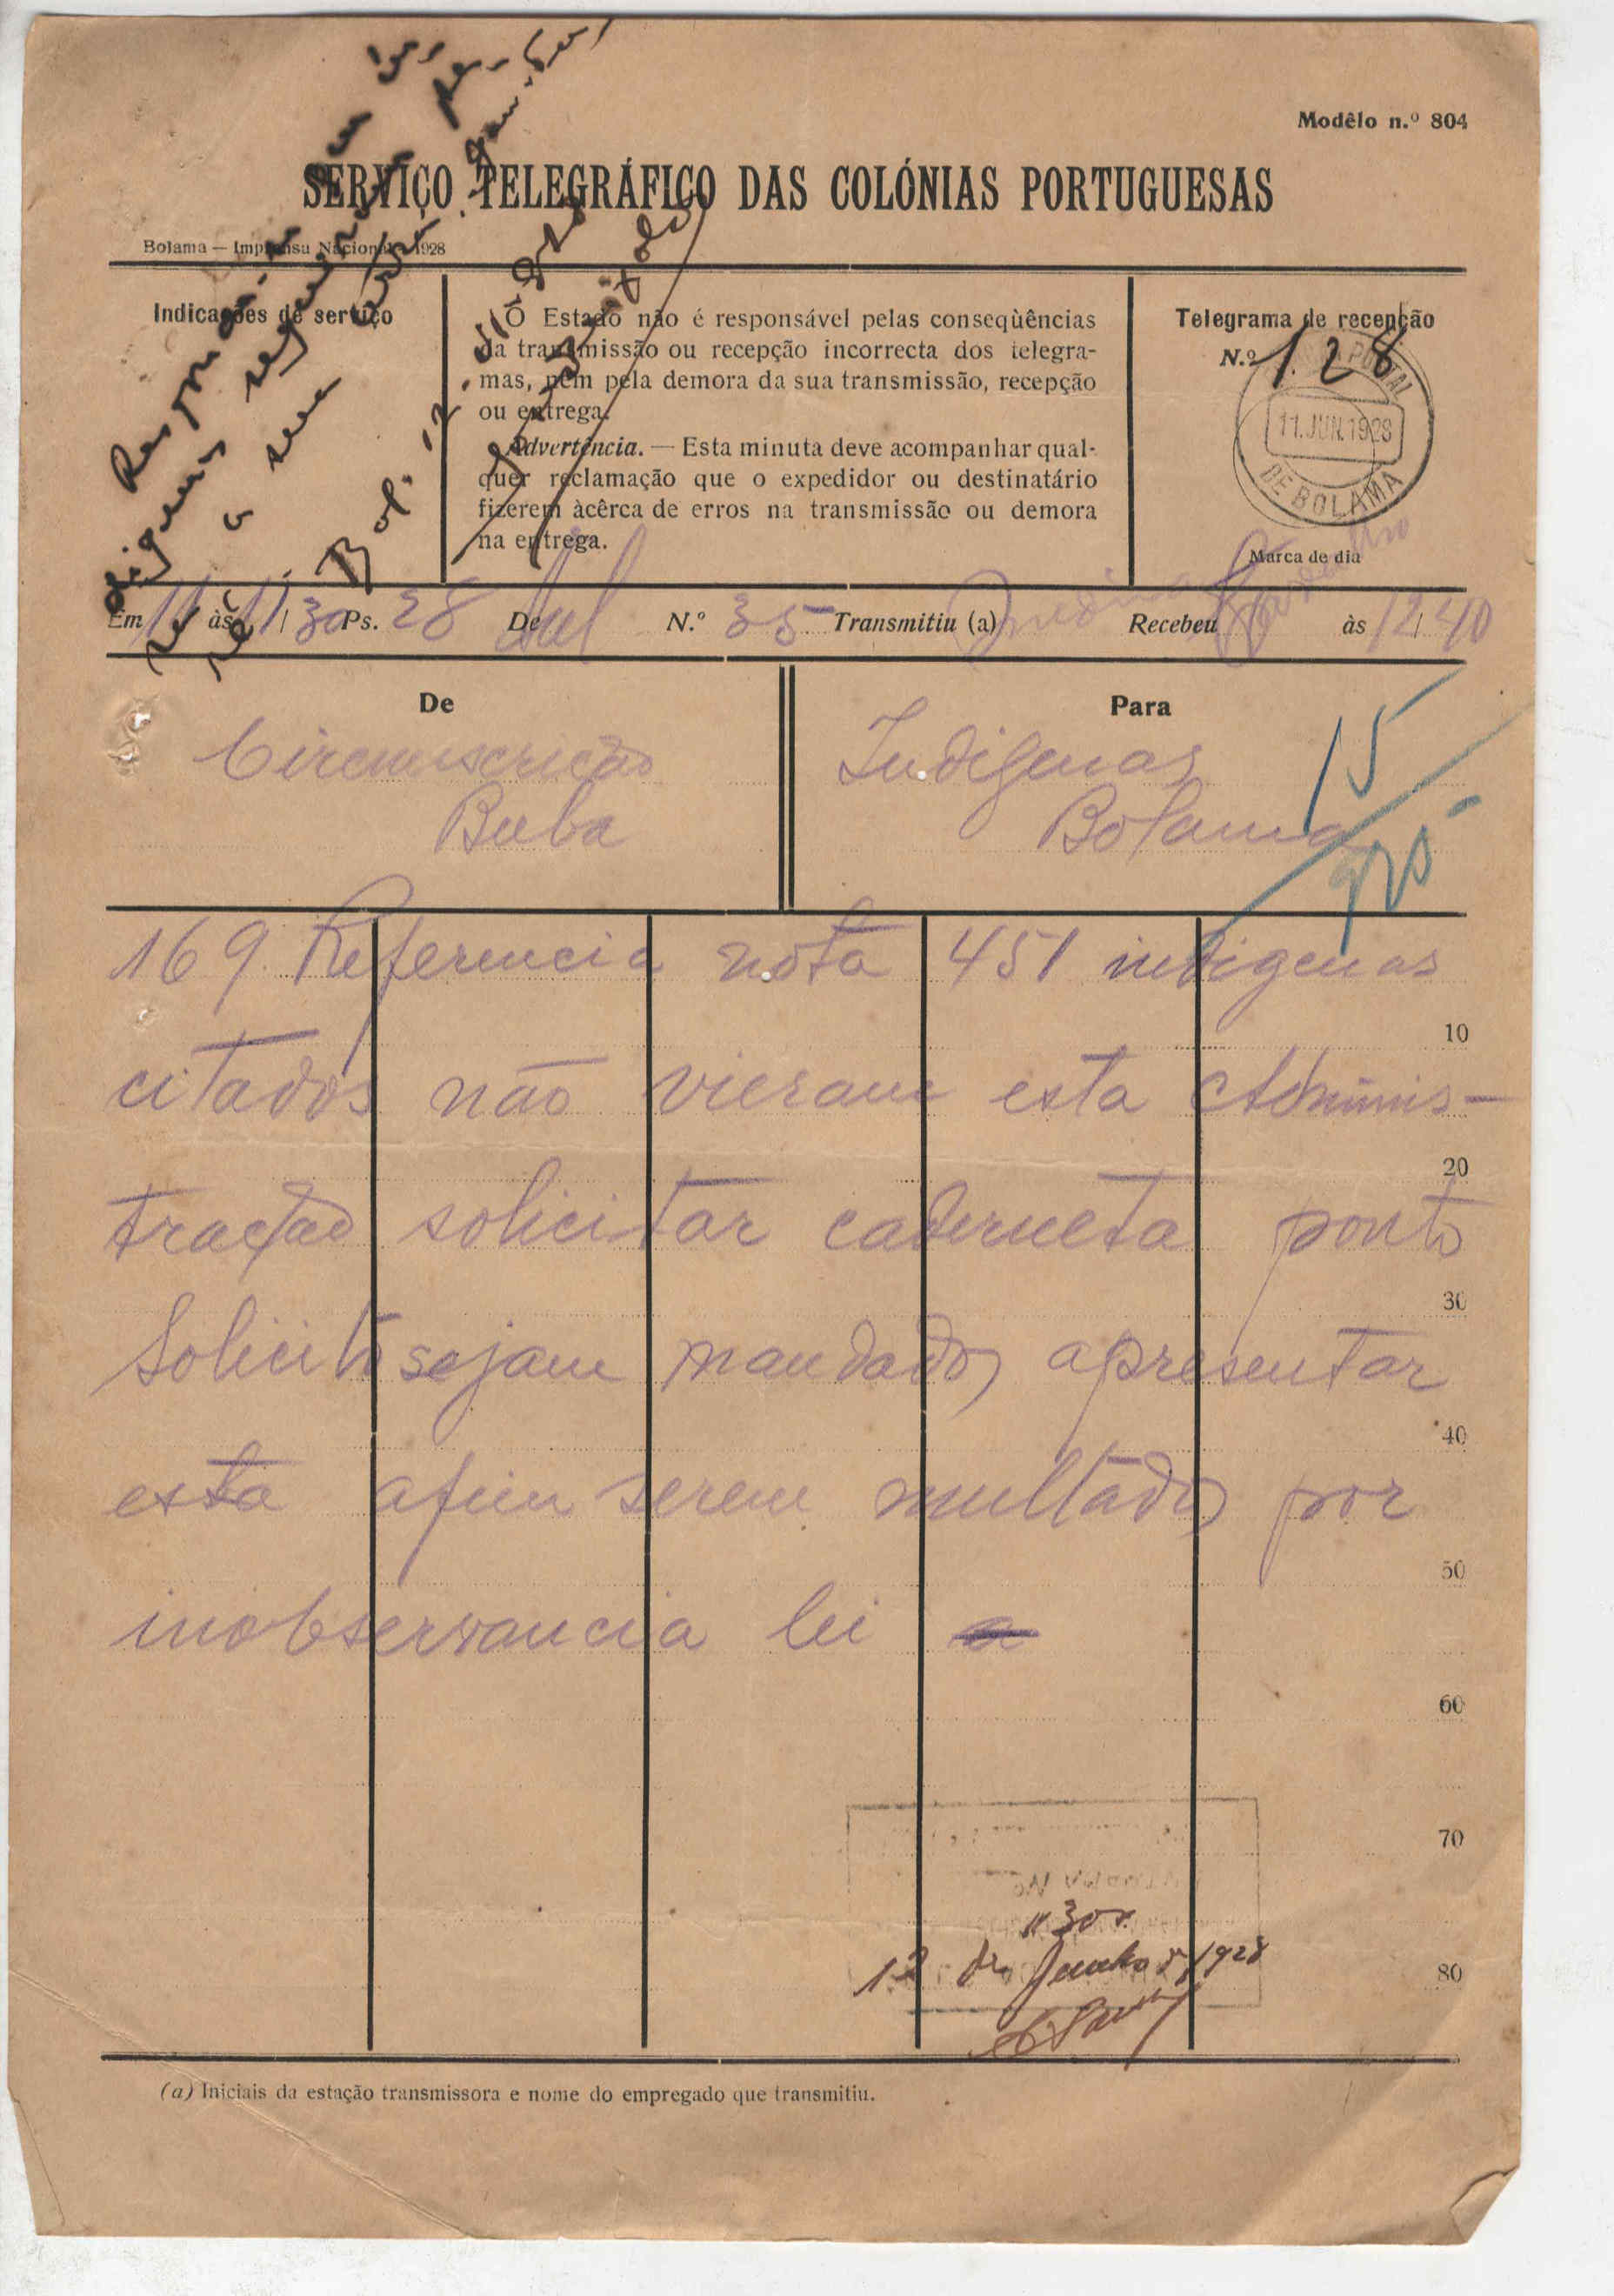 Modêlo n.º 804
SERVIÇO TELEGRÁFICO DAS COLÓNIAS PORTUGUESAS
Bolama — Imprensa Nacional — 1928
Indicações de serviço
O Estado não é responsável pelas conseqùências
da transmissão ou recepção incorrecta dos telegra-
mas, nem pela demora da sua transmissão, recepção
ou entrega.
Advertência. — Esta minuta deve acompanhar qual-
quer reclamação que o expedidor ou destinatário
fizerem àcêrca de erros na transmissão ou demora
na entrega.
Telegrama de recepção
N.º 128
11.JUN.1928
DE BOLAMA
Marca de dia
Em 11 às 11/30 Ps. 28 De N.º 35 Transmitiu (a) Recebeu às 12/40
De
Circunscrição
Buba
Para
Indigenas
Bolama
15
169 Referencia nota 451 indigenas
10
citados não vieram esta Adminis-
20
tração solicitar caderneta ponto
30
Solicito sejam mandados apresentar
40
esta afim serem multados por
50
inobservancia lei
60
70
80
12 de Junho de 1928
(a) Iniciais da estação transmissora e nome do empregado que transmitiu.